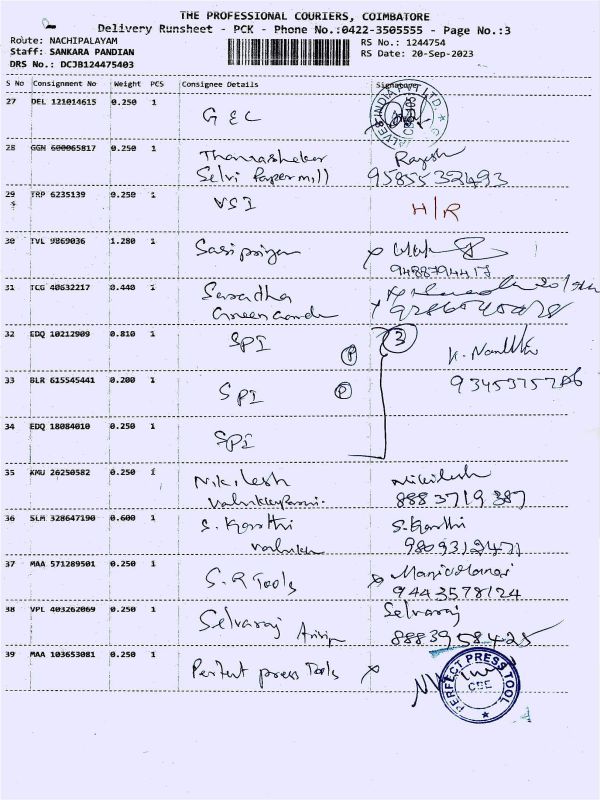 THE PROFESSIONAL COURIERS, COIMBATORE
Delivery Runsheet - PCK - Phone No.:0422-3505555 - Page No.:3
Route: NACHIPALAYAM
RS No.: 1244754
Staff: SANKARA PANDIAN
RS Date: 20-Sep-2023
DRS No.: DCJB124475403
S No Consignment No Weight PCS Consignee Details Signature
27 DEL 121014615 0.250 1 GEC
28 GGN 600065817 0.250 1 Rajesh
Selvi Papermill 9585532493
29 TRP 6235139 0.250 1 VSI H/R
30 TVL 9869036 1.280 1 Sasipriya
9488794417
31 TCG 40632217 0.440 1 Saradha
32 EDQ 10212909 0.810 1 SPI P 3
33 BLR 615545441 0.200 1 SPI P
34 EDQ 18084010 0.250 1 SPI
35 KMU 26250582 0.250 1 Nikilesh Nikilesh
8883719387
36 SLM 328647190 0.600 1 S. Karthi S. Karthi
9809312471
37 MAA 571289501 0.250 1 S.R Tools
9443578124
38 VPL 403262069 0.250 1 Selvaraj Selvaraj
8883958425
39 MAA 103653081 0.250 1 Perfect press Tools
PERFECT PRESS TOOL
CBE